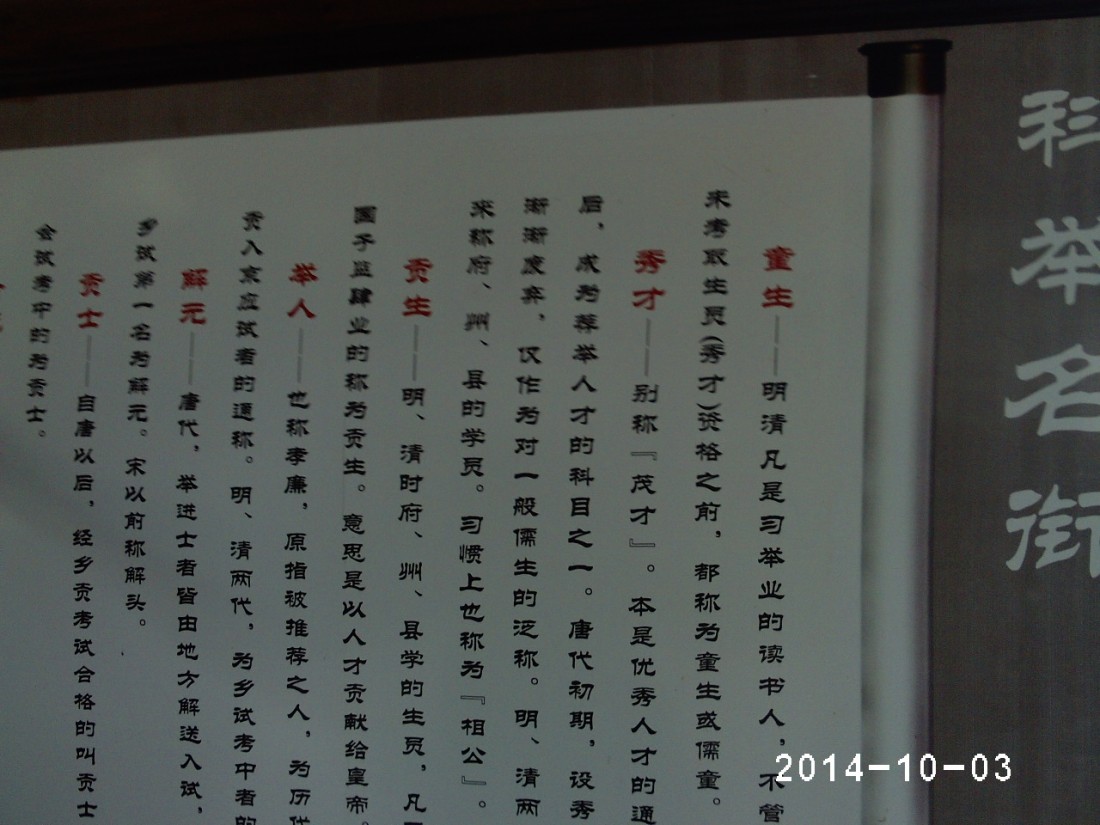 科举名衔
童生——明清凡是习举业的读书人，不管
未考取生员(秀才)资格之前，都称为童生或儒童。
秀才——别称『茂才』。本是优秀人才的通
后，成为荐举人才的科目之一。唐代初期，设秀
渐渐废弃，仅作为对一般儒生的泛称。明、清两
来称府、州、县的学员。习惯上也称为『相公』。
贡生——明、清时府、州、县学的生员，凡
国子监肄业的称为贡生。意思是以人才贡献给皇帝。
举人——也称孝廉，原指被推荐之人，为历代
贡入京应试者的通称。明、清两代，为乡试考中者的
解元——唐代，举进士者皆由地方解送入试，
乡试第一名为解元。宋以前称解头。
贡士——自唐以后，经乡贡考试合格的叫贡士
会试考中的为贡士。
2014-10-03